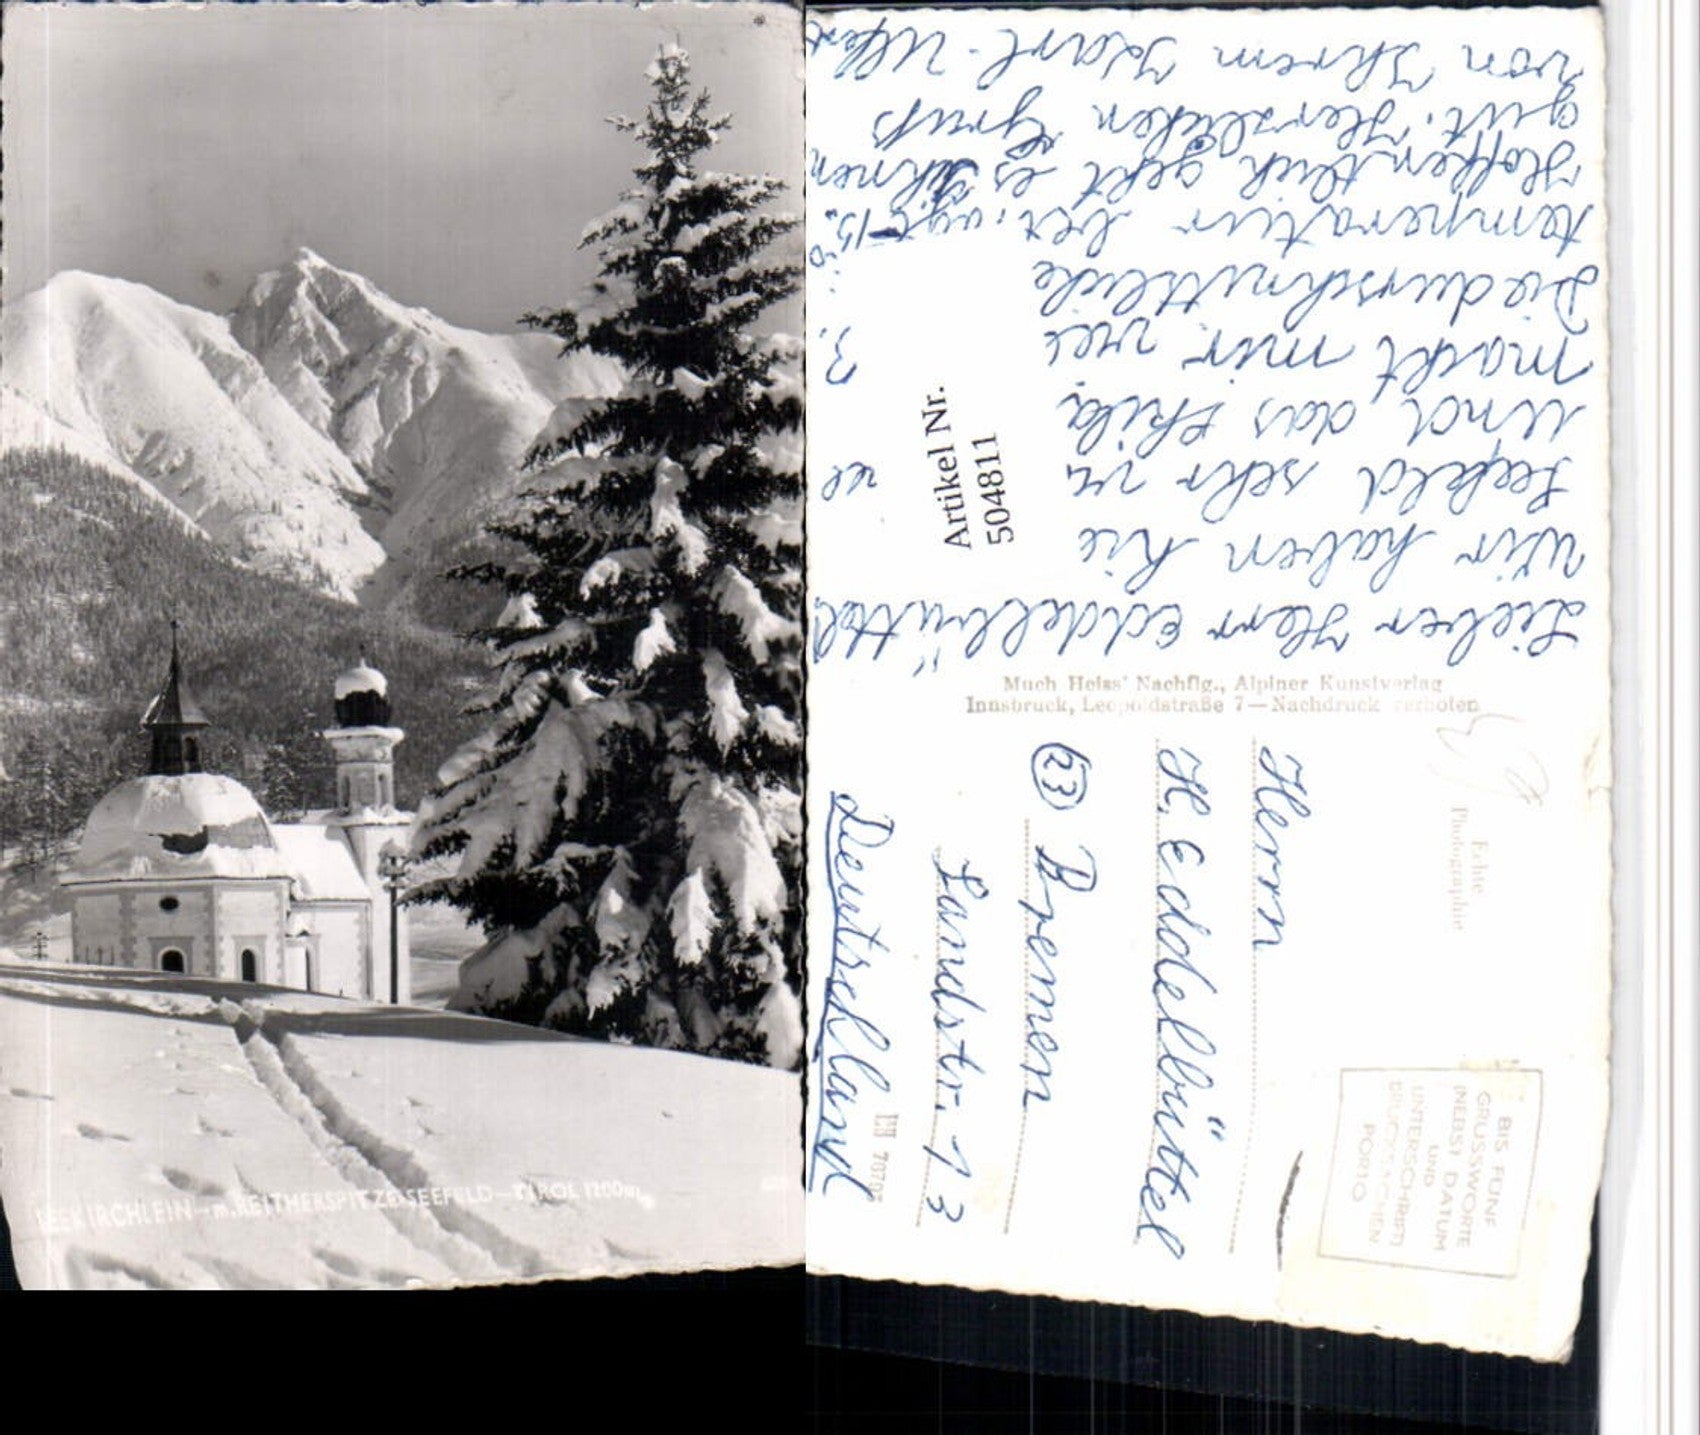 SEEKIRCHLEIN-m.REITHERSPITZE-SEEFELD-TIROL 1200m
Lieber Herr Eddelbüttel
Wir haben hie
Seefeld sehr vi
und das Skila
macht mir vie
Die durschnittliche
temperatur bet.
Hoffentlich geht es Ihnen
gut. Herzlichen Gruß
von Ihrem Karl-
Artikel Nr.
5048811
Much Heiss' Nachflg., Alpiner Kunstverlag
Innsbruck, Leopoldstraße 7—Nachdruck verboten
Echte
Photographie
BIS FÜNF
GRUSSWORTE
(NEBST DATUM
UND
UNTERSCHRIFT)
DRUCKSACHEN
PORTO
Herrn
H. Eddelbüttel
(23) Bremen
Landstr. 13
Deutschland